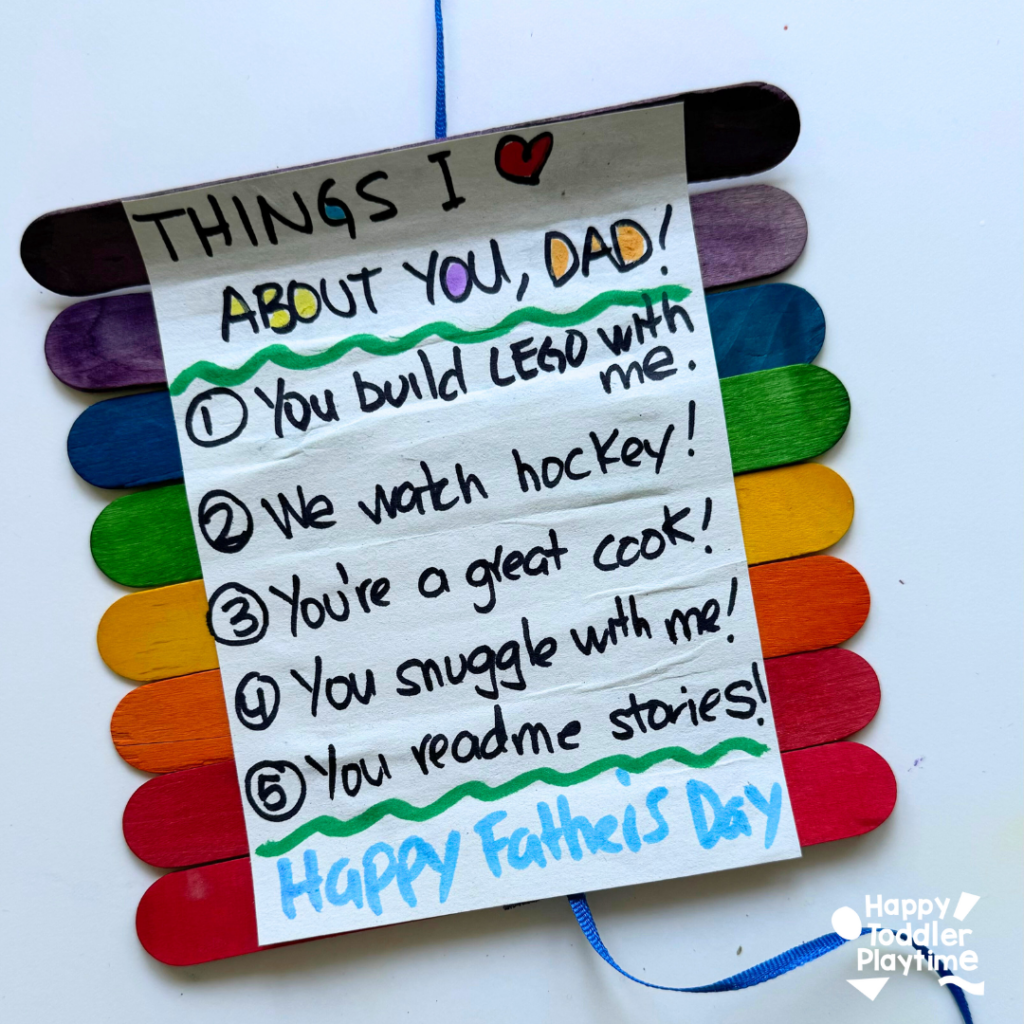 THINGS I ❤
ABOUT YOU, DAD!
① You build LEGO with
me.
② We watch hockey!
③ You're a great cook!
④ You snuggle with me!
⑤ You read me stories!
Happy Father's Day
Happy
Toddler
Playtime